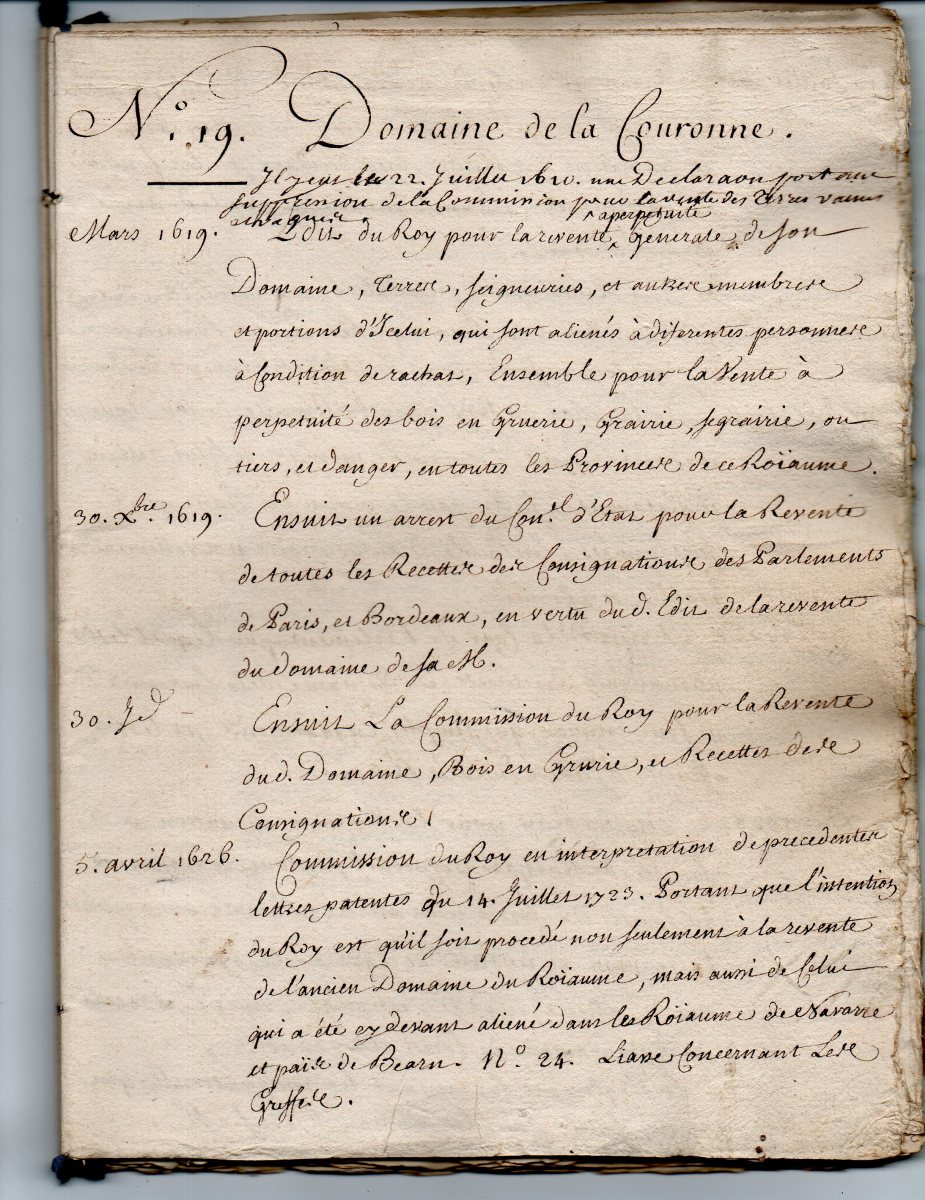 N.º 19. Domaine de la Couronne.
Il y eut le 22. Juillet 1610. une Declaraon portant
suppression de la Commission pour la vente des Terres vaines
a perpetuité
Mars 1619. Edit du Roy pour la revente ^ generale de son
Domaine, Terres, seigneuries, et autres membres
et portions d'Icelui, qui sont aliénés à diferentes personnes
à Condition de rachat, Ensemble pour la Vente à
perpetuité des bois en Gruerie, Grairie, segrairie, ou
tiers, et danger, en toutes les Provinces de ce Roïaume.
30. Xbre. 1619. Ensuit un arrest du Con.el d'Etat pour la Revente
de toutes les Recettes des Consignations des Parlements
de Paris, et Bordeaux, en vertu du d. Edit de la revente
du domaine de sa M.
30. Jd - Ensuit La Commission du Roy pour la Revente
du d. Domaine, Bois en Grurie, et Recettes des
Consignations
5. avril 1626. Commission du Roy en interpretation de precedentes
lettres patentes du 14. Juillet 1723. Portant que l'intention
du Roy est qu'il soit procedé non seulement à la revente
de l'ancien Domaine du Roïaume, mais aussi de Celui
qui a été cy devant aliené dans les Roïaume de Navarre
et païs de Bearn. N.º 24. Liasse Concernant Les
Greffes.